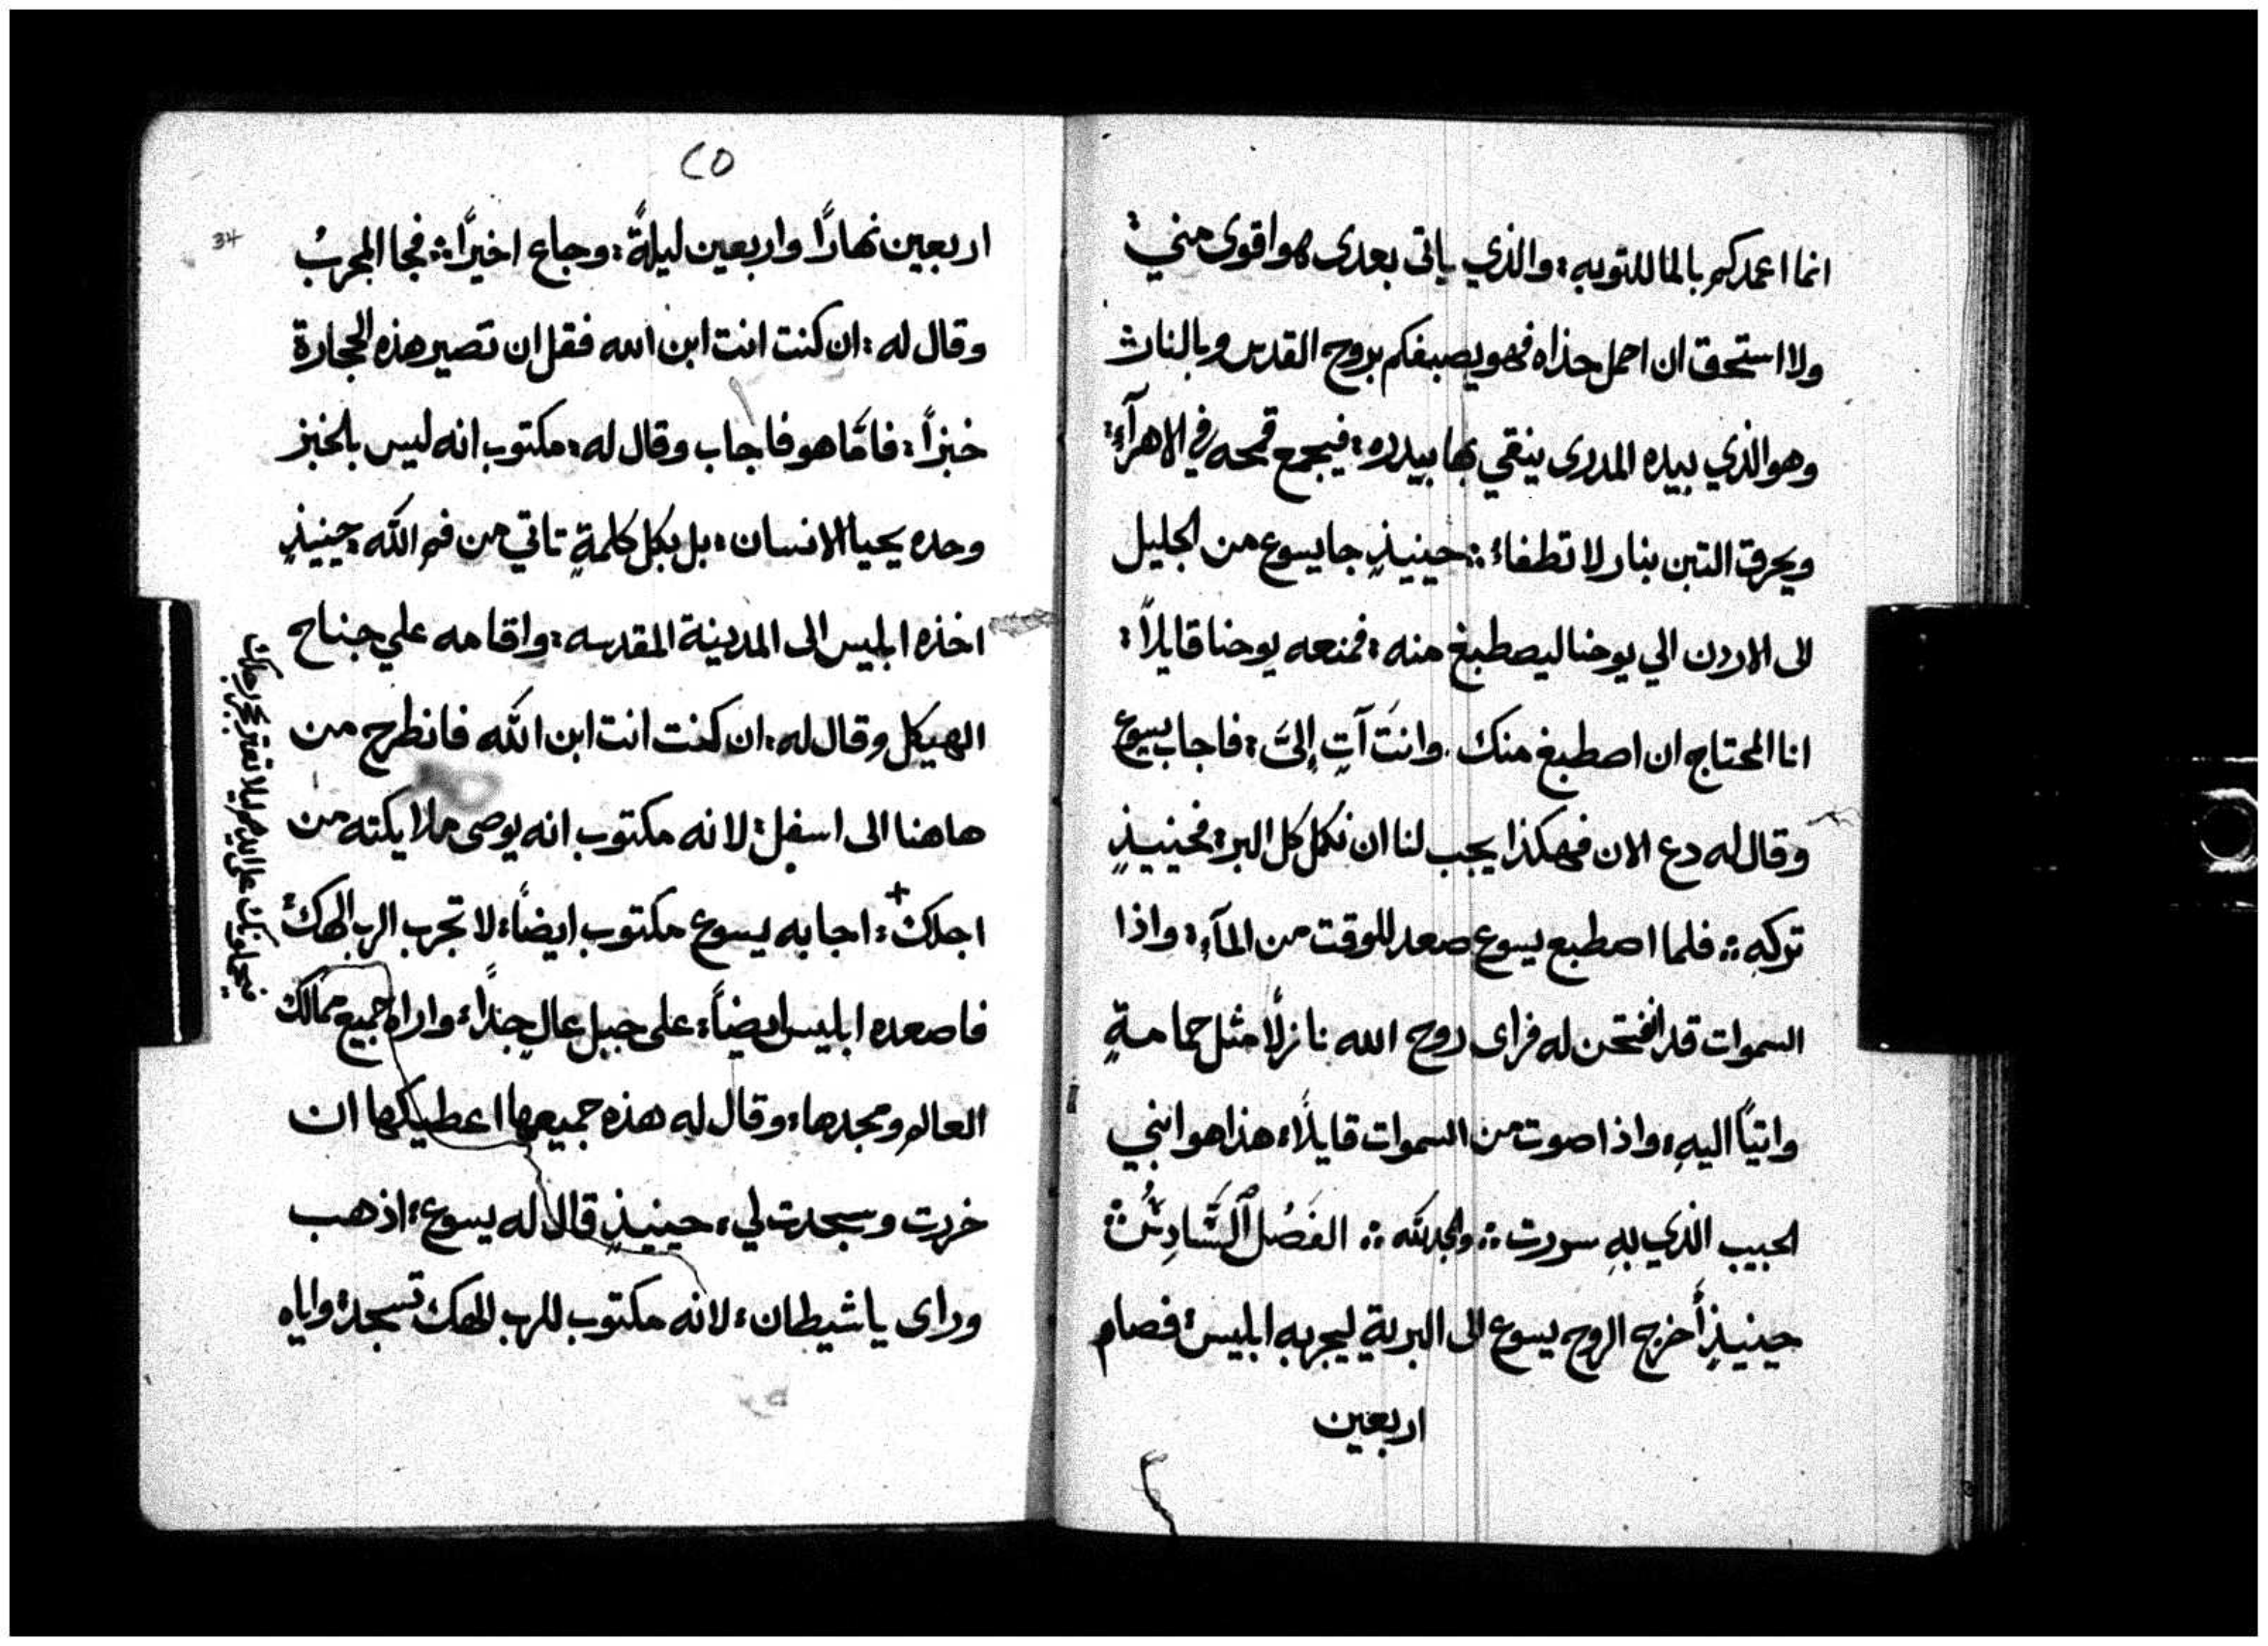 انما اعمدكم بالما للتوبه : والذي ياتى بعدى هو اقوى مني :
ولا استحق ان احمل حذاه فهو يصبغكم بروح القدس وبالنار :
وهو الذي بيده المدرى ينقي بها بيدره : فيجمع قمحه في الاهرآءِ :
ويحرق التبن بنار لا تطفاء :: حينيذٍ جا يسوع من الجليل
الى الاردن الي يوحنا ليصطبغ منه : فمنعه يوحنا قايلاً :
انا المحتاج ان اصطبغ منك . وانتَ آتٍ إليَّ : فاجاب يسوع
وقال له دع الان فهكذا يجب لنا ان نكمل كل البر : فحينيذٍ
تركهِ :: فلما اصطبع يسوع صعد للوقت من المآءِ : واذا
السموات قد انفتحن له فراى روح الله نازلًا مثل حمامةٍ
واتياً اليهِ : واذا صوت من السموات قايلًا : هذا هو ابني
الحبيب الذي بهِ سررت :: والمجد لله :: الفَصْل السَّادِسُ
حينيذٍ أخرج الروح يسوع الى البرية ليجربه ابليس : فصام
اربعين
٢٥
34
اربعين نهارًا واربعين ليلةً : وجاع اخيرًا :: فجا المجربُ
وقال له : ان كنت انت ابن الله فقل ان تصير هذه الحجارة
خبزاً : فامَّا هو فاجاب وقال له : مكتوب انه ليس بالخبز
وحده يحيا الانسان : بل بكل كلمةٍ تاتي من فم الله : حينيذٍ
اخذه ابليس الى المدينة المقدسه : واقامه علي جناح
الهيكل وقال له : ان كنت انت ابن الله فانطرح من
هاهنا الى اسفل : لانه مكتوب انه يوصى ملايكته من
اجلك + : اجابه يسوع مكتوب ايضاً : لا تجرب الرب الهك :
فاصعده ابليس ايضاً : على جبل عالٍ جداً : واراه جميع ممالك
العالم ومجدها : وقال له هذه جميعها اعطيكها ان
خررت وسجدت لي : حينيذٍ قال له يسوع : اذهب
وراى يا شيطان : لانه مكتوب للرب الهك تسجد : واياه
فيحملونك على ايديهم ليلا تعثر بحجر رجلك